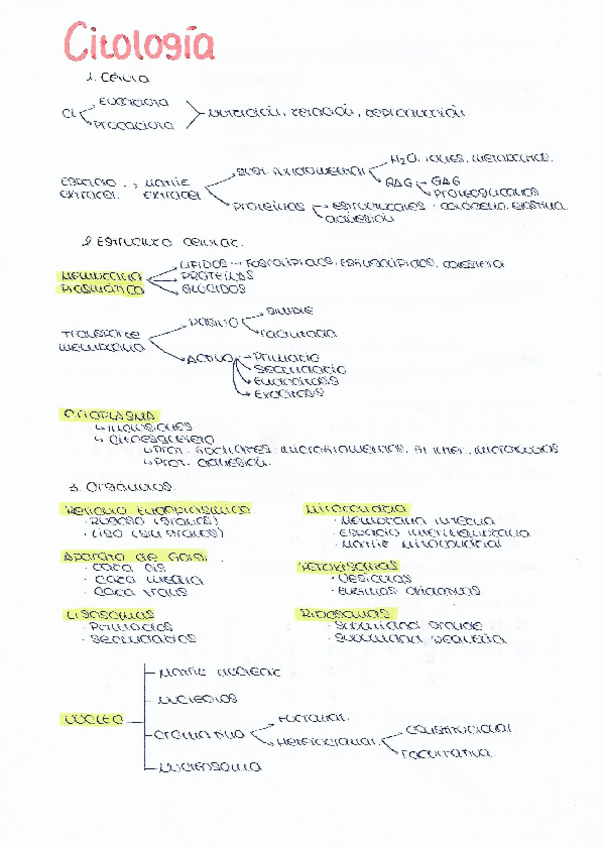 Citología
1. Célula
Cl
Eucariota
Procariota
nutrición, relación, reproducción
Espacio extracel.
Matriz extracel
Sust. fundamental
H2O, iones, metabolitos.
GAG
GAG
Proteoglucanos
Proteínas
estructurales · colágeno, elastina.
adhesión
2. Estructura celular.
Membrana plasmática
LÍPIDOS → Fosfolípidos, esfingolípidos, colesterol
PROTEÍNAS
GLÚCIDOS
Transporte membrana
PASIVO
SIMPLE
Facilitada
ACTIVO
Primario
Secundario
Endocitosis
Exocitosis
CITOPLASMA
↳ inclusiones
↳ citoesqueleto
↳ Prot. fibrilares: microfilamentos, fil. inter., microtúbulos
↳ Prot. adhesión.
3. Orgánulos.
Retículo Endoplasmático
· Rugoso (
· Liso (
Aparato de Golgi.
· Cara cis
· Cara media
· Cara trans
Lisosomas
· Primarios
· Secundarios
Mitocondria
· Membrana interna
· Espacio intermembrana
· Matriz mitocondrial
Peroxisomas
· Vesículas
· Enzimas oxidantes
Ribosomas
· Subunidad grande
· Subunidad pequeña
Núcleo
Matriz nuclear
Nucleolos
Cromatina
Eucromat.
Heterocromat.
Constitucional
Facultativa
Nucleosoma